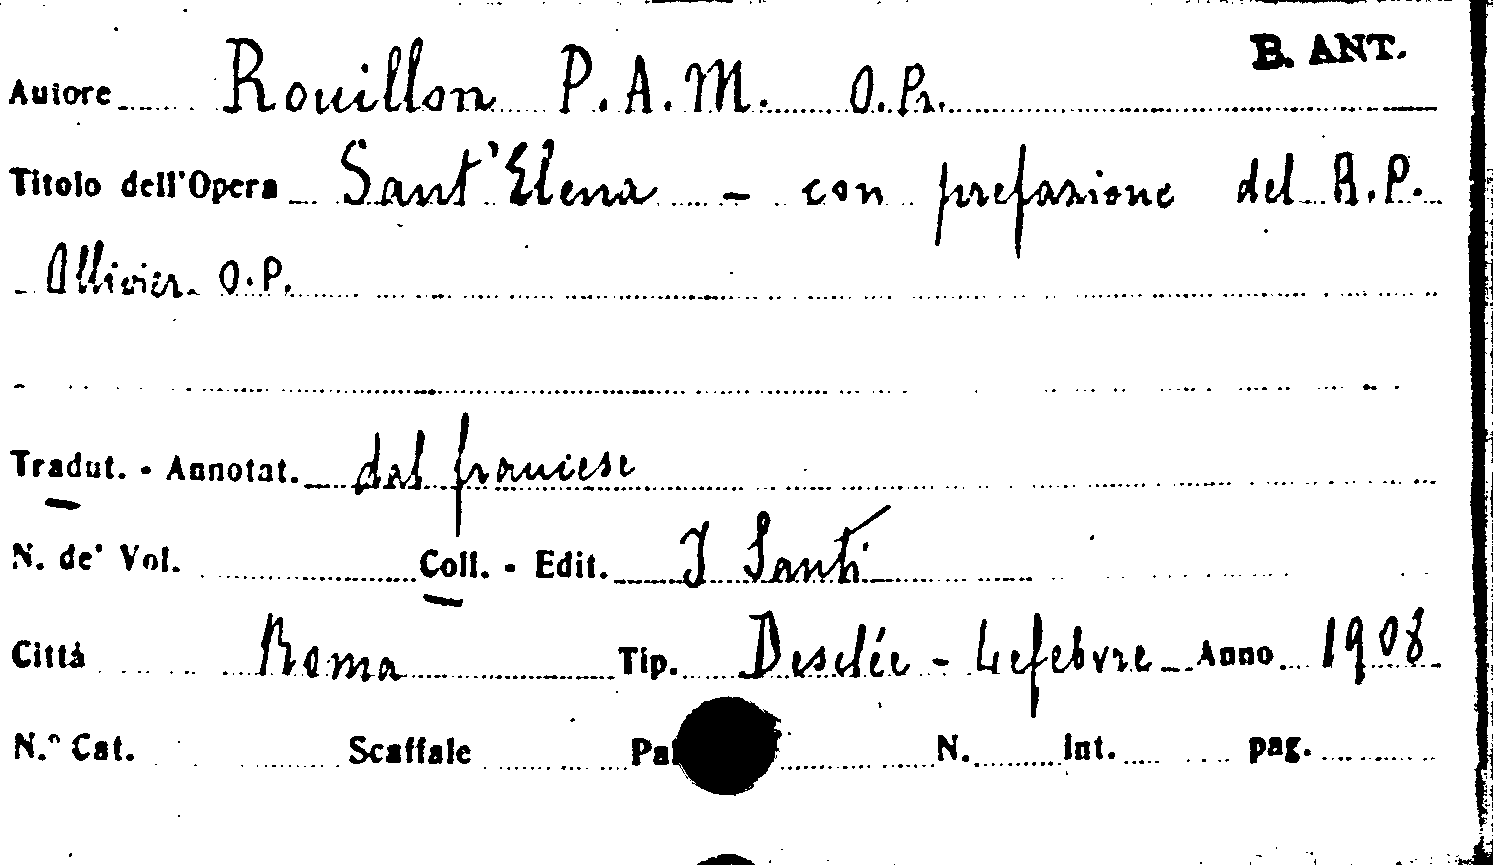 B. ANT.
Autore Rouillon P. A. M. O. Pr.
Titolo dell'Opera Sant'Elena - con prefazione del R. P.
Ollivier. O. P.
Tradut. - Annotat. dal francese
N. de' Vol. Coll. - Edit. I Santi
Città Roma Tip. Desclée - Lefebvre Anno 1908
N.° Cat. Scaffale Pal N. Int. pag.